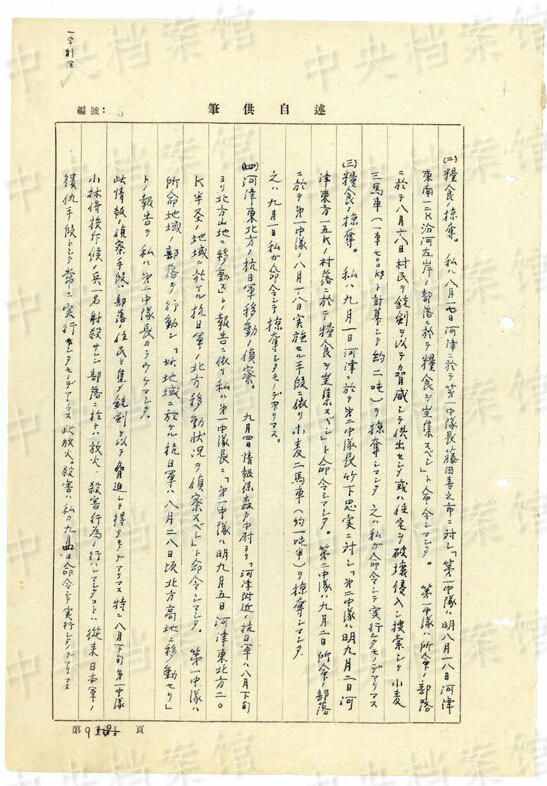 一字削除
編號:
述自供筆
(二)糧食ノ掠奪。私ハ八月一七日河津ニ於テ第一中隊長藤田善久市ニ対シ「第一中隊ハ明八月一八日河津
東南一二K汾河左岸ノ部落ニ於テ糧食ヲ蒐集スベシ」ト命令シマシタ。第一中隊ハ所命ノ部落
ニ於テ八月十八日村民ヲ銃剣ヲ以テ脅威シテ供出セシメ或ハ住宅ヲ破壊侵入シ捜索シテ小麦
三馬車(一車七〇〇瓩ト計算シテ約二噸)ヲ掠奪シマシタ之ハ私ガ命令シテ実行シタモノデアリマス
(三)糧食ノ掠奪。私ハ九月一日河津ニ於テ第二中隊長竹下忠実ニ対シ「第二中隊ハ明九月二日河
津東方一五Kノ村落ニ於テ糧食ヲ蒐集スベシ」ト命令シマシタ。第二中隊ハ九月二日所命ノ部落
ニ於テ第一中隊ノ八月一八日実施セル手段ニ依リ小麦二馬車(約一噸半)ヲ掠奪シマシタ
之ハ九月一日私ガ命令シテ掠奪シタモノデアリマス。
(四)河津東北方ノ抗日軍移動ノ偵察。九月四日情報係森戸中尉ヨリ「河津附近ノ抗日軍ハ八月下旬
ヨリ北方山地ニ移動セリ」トノ報告ニ依リ私ハ第一中隊長ニ「第一中隊ハ明九月五日河津東北方二〇
K半至地域ニ於ケル抗日軍ノ北方移動状況ヲ偵察スベシ」ト命令シマシタ。第一中隊ハ
所命地域ノ部落ヲ行動シ「此地域ニ於ケル抗日軍ハ八月二八日頃北方高地ニ移動セリ」
トノ報告ヲ私ハ第一中隊長カラウケマシタ。
此情報ノ偵察手段ハ部落ノ住民ヲ集メ銃剣ヲ以テ脅迫シテ得タモノデアリマス特ニ八月下旬第一中隊
小林将校斥候ノ兵一名射殺サレシ部落ニ於テハ放火、殺害行為ヲ行ヒマシタコトハ従来日本軍ノ
復仇手段トシテ常ニ実行シタモノデアリマス此放火、殺害ハ私ガ九月四日命令シテ実行シタノデアリマス
第6頁
中央档案馆